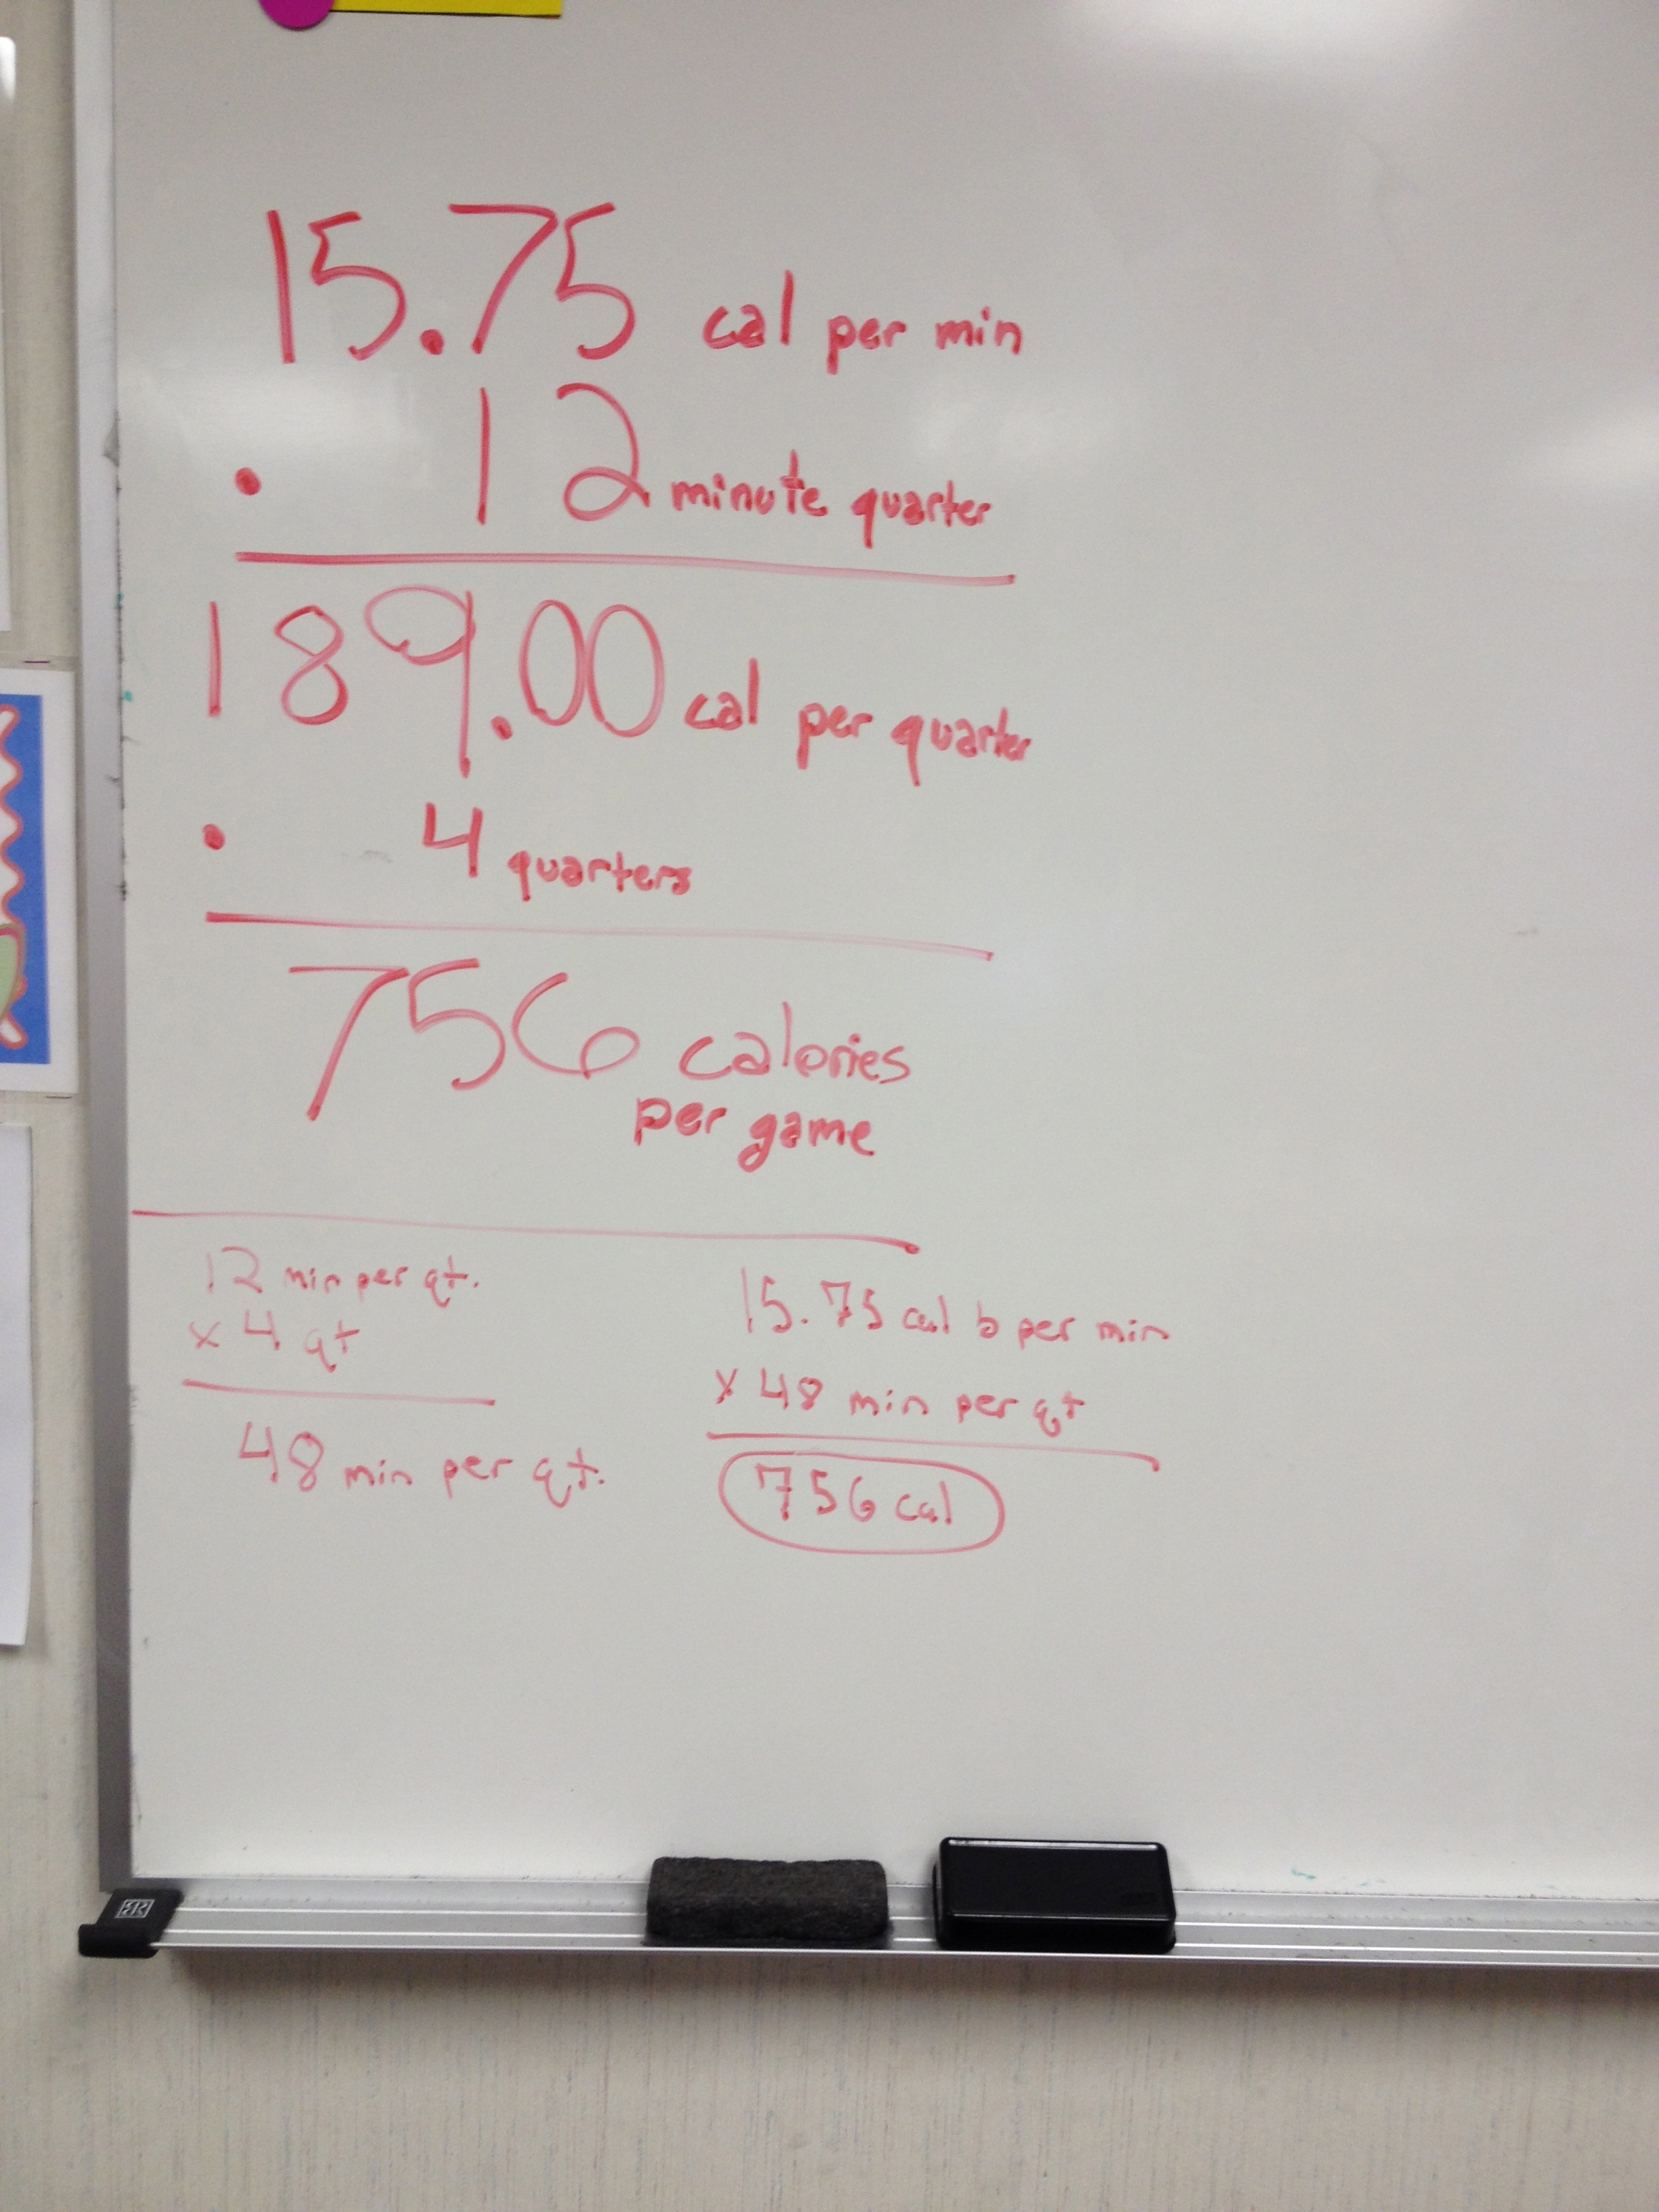 15.75 cal per min
. 12 minute quarter
189.00 cal per quarter
. 4 quarters
756 calories
per game
12 min per qt.
x 4 qt
48 min per qt.
15.75 cal b per min
x 48 min per qt
756 cal